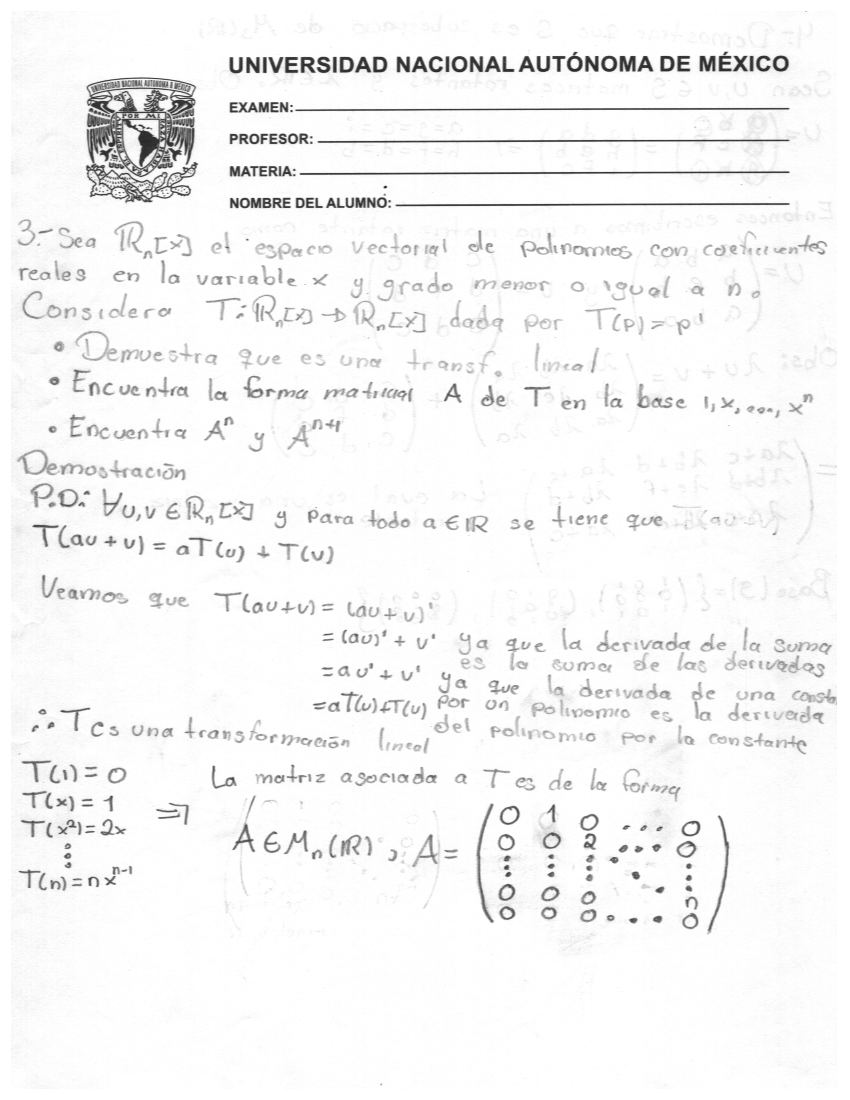 UNIVERSIDAD NACIONAL AUTÓNOMA DE MÉXICO
UNIVERSIDAD NACIONAL AUTÓNOMA D MÉXICO
POR MI
EXAMEN:
PROFESOR:
MATERIA:
NOMBRE DEL ALUMNO:
3.- Sea ℝₙ[x] el espacio vectorial de polinomios con coeficientes
reales en la variable x y grado menor o igual a n.
Considera T: ℝₙ[x] → ℝₙ[x] dada por T(p) = p'
• Demuestra que es una transf. lineal
• Encuentra la forma matricial A de T en la base 1, x, ..., xⁿ
• Encuentra Aⁿ y Aⁿ⁺¹
Demostración
P.D.: ∀u,v ∈ ℝₙ[x] y para todo a ∈ ℝ se tiene que
T(au + v) = aT(u) + T(v)
Veamos que T(au+v) = (au + v)'
= (au)' + v' ya que la derivada de la suma
es la suma de las derivadas
= au' + v' ya que la derivada de una consta
= aT(u)+T(v) por un polinomio es la derivada
del polinomio por la constante
∴ T es una transformación lineal
T(1) = 0
T(x) = 1
T(x²) = 2x
⋮
T(n) = nxⁿ⁻¹
⇒ La matriz asociada a T es de la forma
A ∈ Mₙ(ℝ), A =
0 1 0 ... 0
0 0 2 ... 0
⋮ ⋮ ⋮ ⋱ ⋮
0 0 0 . n
0 0 0 ... 0